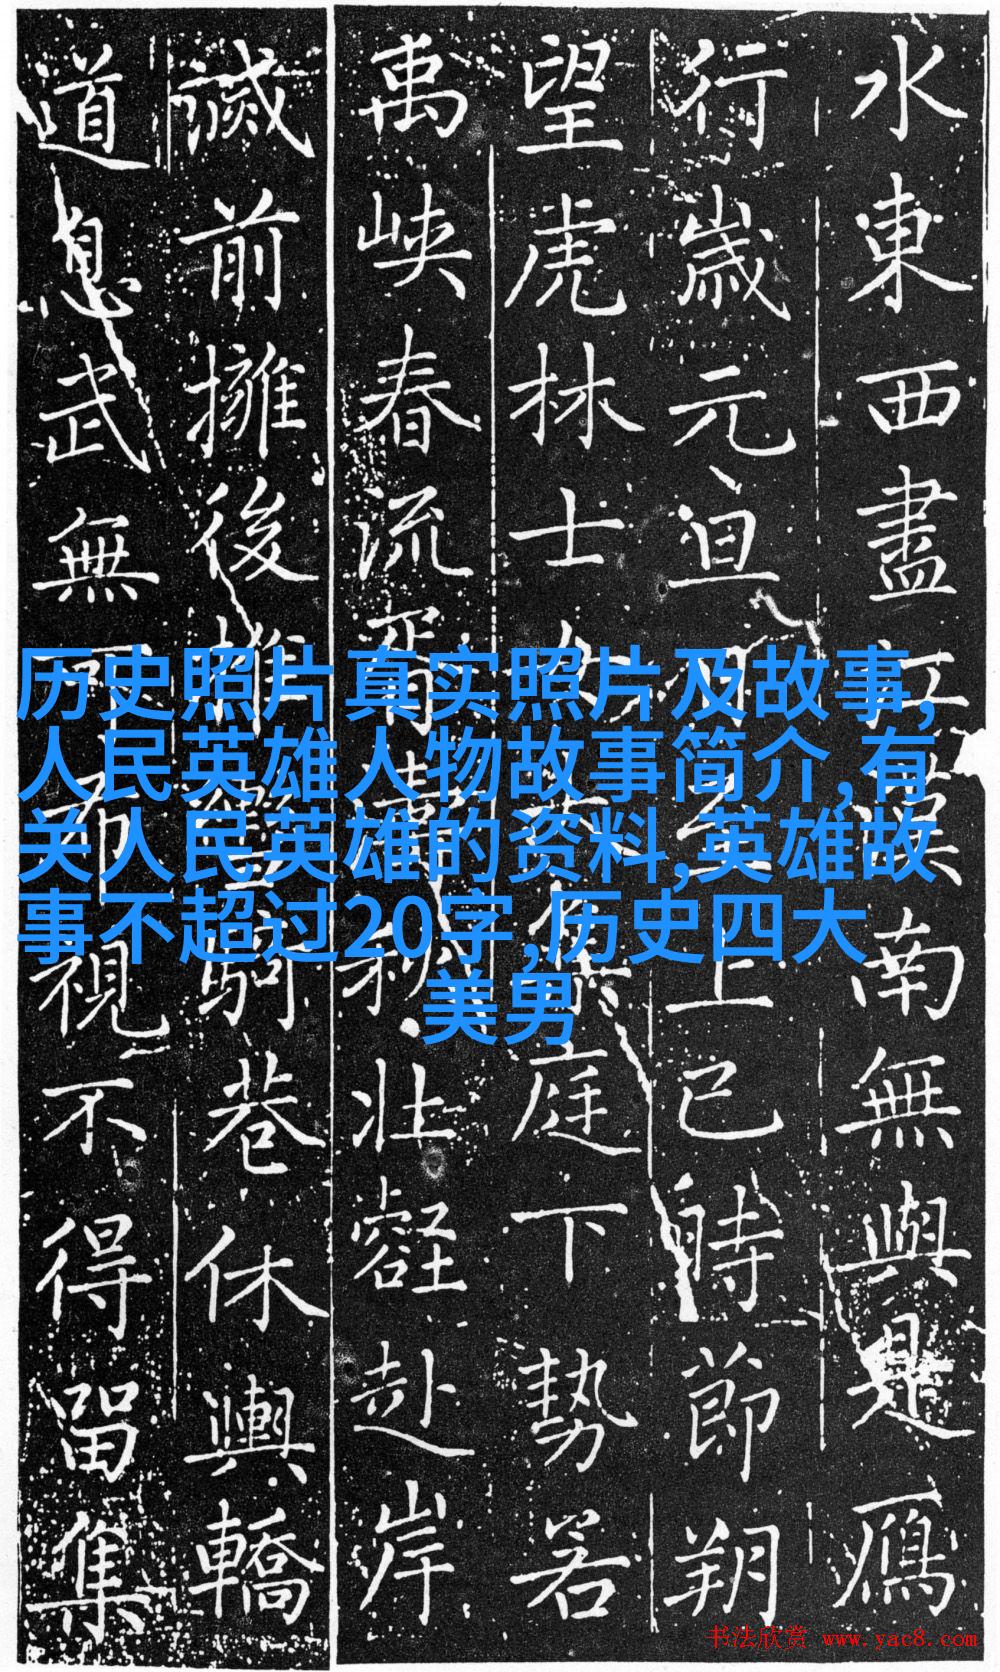 水東西盡江漢南無與是鴈
行歲元旦上巳時節朔
望虎林士庭下勢若
禹峽春流胥秋壯壑赴岸
前擁後駒巷休輿轎
道息武無視不得留集
历史照片真实照片及故事,
人民英雄人物故事简介,有
关人民英雄的资料,英雄故
事不超过20字,历史四大
美男
书法欣赏 www.yac8.com